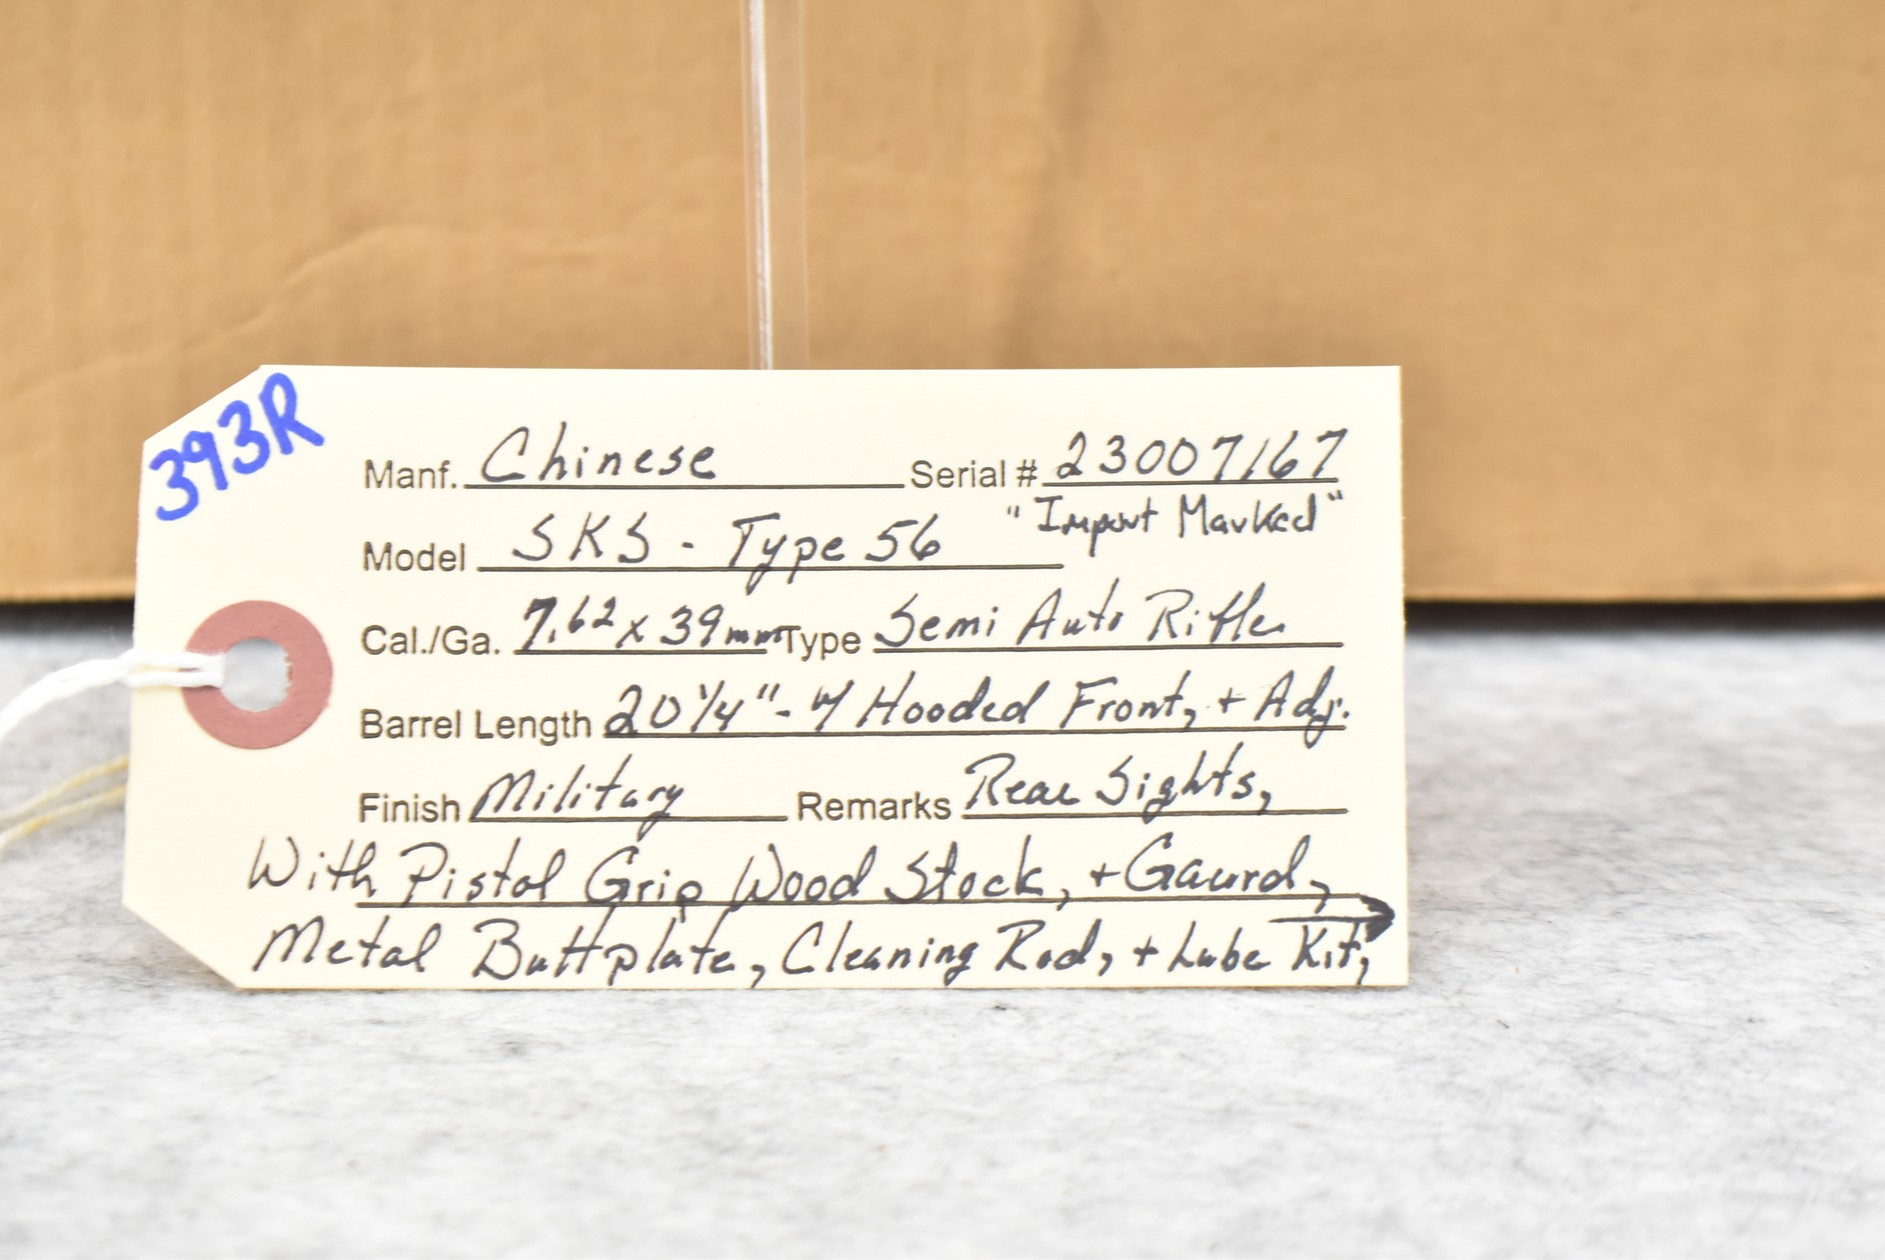 393R
Manf. Chinese Serial # 23007167
"Import Marked"
Model SKS - Type 56
Cal./Ga. 7.62 x 39mm Type Semi Auto Rifle
Barrel Length 20 1/4" - w/ Hooded Front, + Adj.
Finish Military Remarks Rear Sights,
With Pistol Grip Wood Stock, + Gaurd,
Metal Buttplate, Cleaning Rod, + Lube Kit,